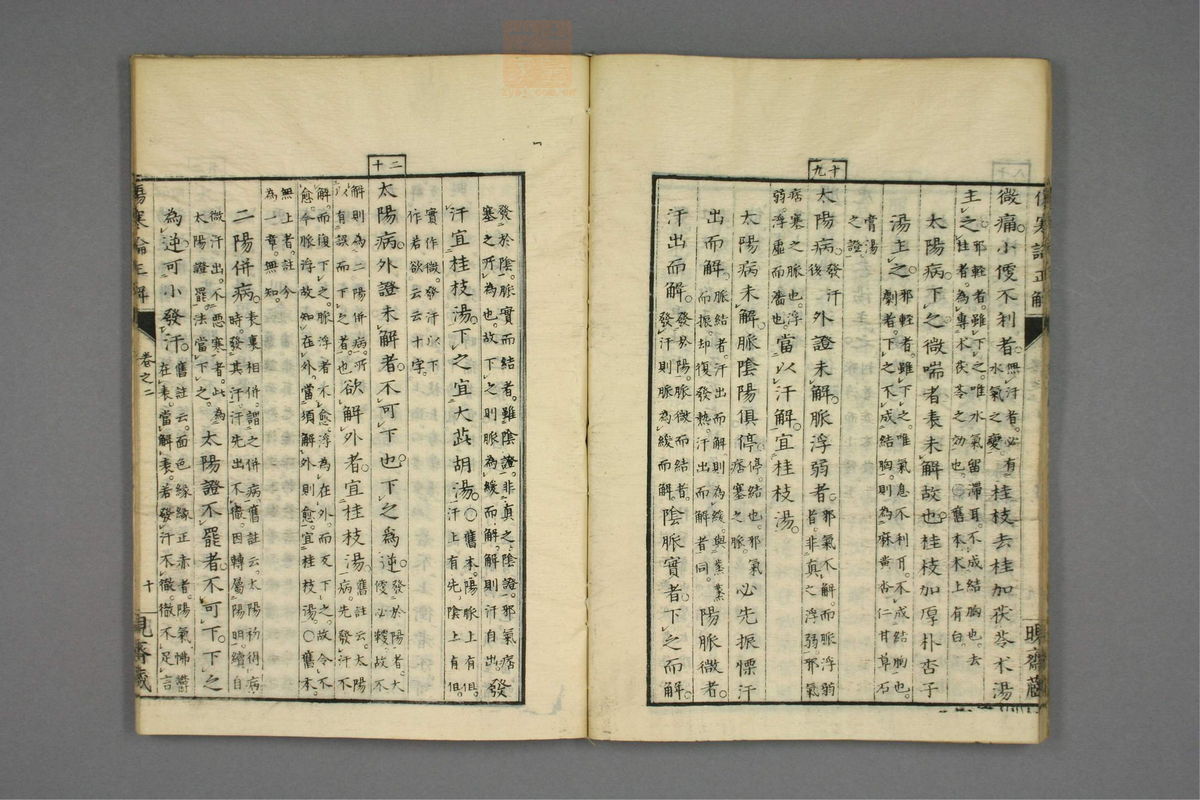 傷寒論正解
微痛。小便不利者。無汗者。必有水氣之變。桂枝去桂加茯苓朮湯
主之。邪輕者。雖下之。唯水氣留滯耳。不成結胸也。去桂者。為專朮茯苓之効也。○舊本朮上有白。
太陽病。下之微喘者。表未解故也。桂枝加厚朴杏子
湯主之。邪輕者。雖下之。唯氣息不利耳。不成結胸也。劇者。下之不成結胸。則為麻黃杏仁甘草石
膏湯之證。
十九
太陽病。發汗後外證未解。脈浮弱者。邪氣不解。而脈浮弱皆。非真之浮弱。邪氣
痞塞之脈也。浮弱。浮虛而濇也。當以汗解。宜桂枝湯。
太陽病未解。脈陰陽俱停。停。結也。邪氣痞塞之脈。必先振慄汗
出而解。脈結者。汗出而解。則為緩。與蒸蒸而振。却復發熱。汗出而解者同。陽脈微者。
汗出而解。發於陽。脈微而結者。發汗則脈為緩而解。陰脈實者。下之而解。
發於陰。脈實而結者。雖陰證。非真之陰證。邪氣痞塞之所為也。故下之則脈為緩而解。解則汗自出。發
汗宜桂枝湯。下之宜大茈胡湯。○舊本。陽脈上有俱。汗上有先。陰上有俱。
實作微。發汗以下作若欲云云十字。
二十
太陽病。外證未解者。不可下也。下之為逆。發於陽者。大便必鞕。故不
解則為二陽併病。所以有誤而下之者也。欲解外者。宜桂枝湯。舊註云。太陽病。先發汗不
解。而復下之。脈浮者不愈。浮為在外。而反下之。故令不愈。今脈浮。故知在外。當須解外則愈。宜桂枝湯。○舊本。
無上者註。今為一章。無知。
二陽併病。表裏相併。謂之併病。舊註云。太陽初得病時。發其汗。汗先出不徹。因轉屬陽明。續自
微汗出。不惡寒者。此為太陽證罷。法當下之。太陽證不罷者。不可下。下之
為逆。可小發汗。舊註云。面色緣緣正赤者。陽氣怫鬱在表。當解表。若發汗不徹。徹不足言
傷寒論正解
卷之二
十